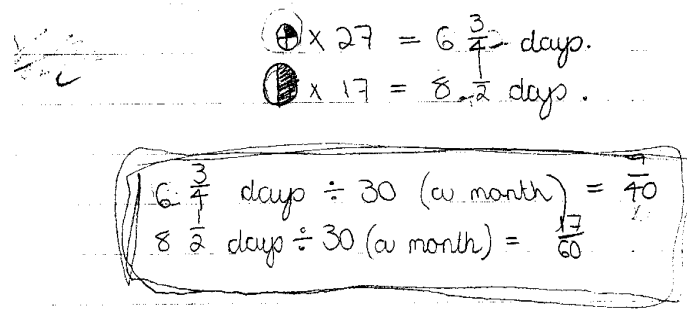 x 27 = 6 3/4 days.
x 17 = 8 1/2 days.
6 3/4 days ÷ 30 (a month) = 9/40
8 1/2 days ÷ 30 (a month) = 17/60